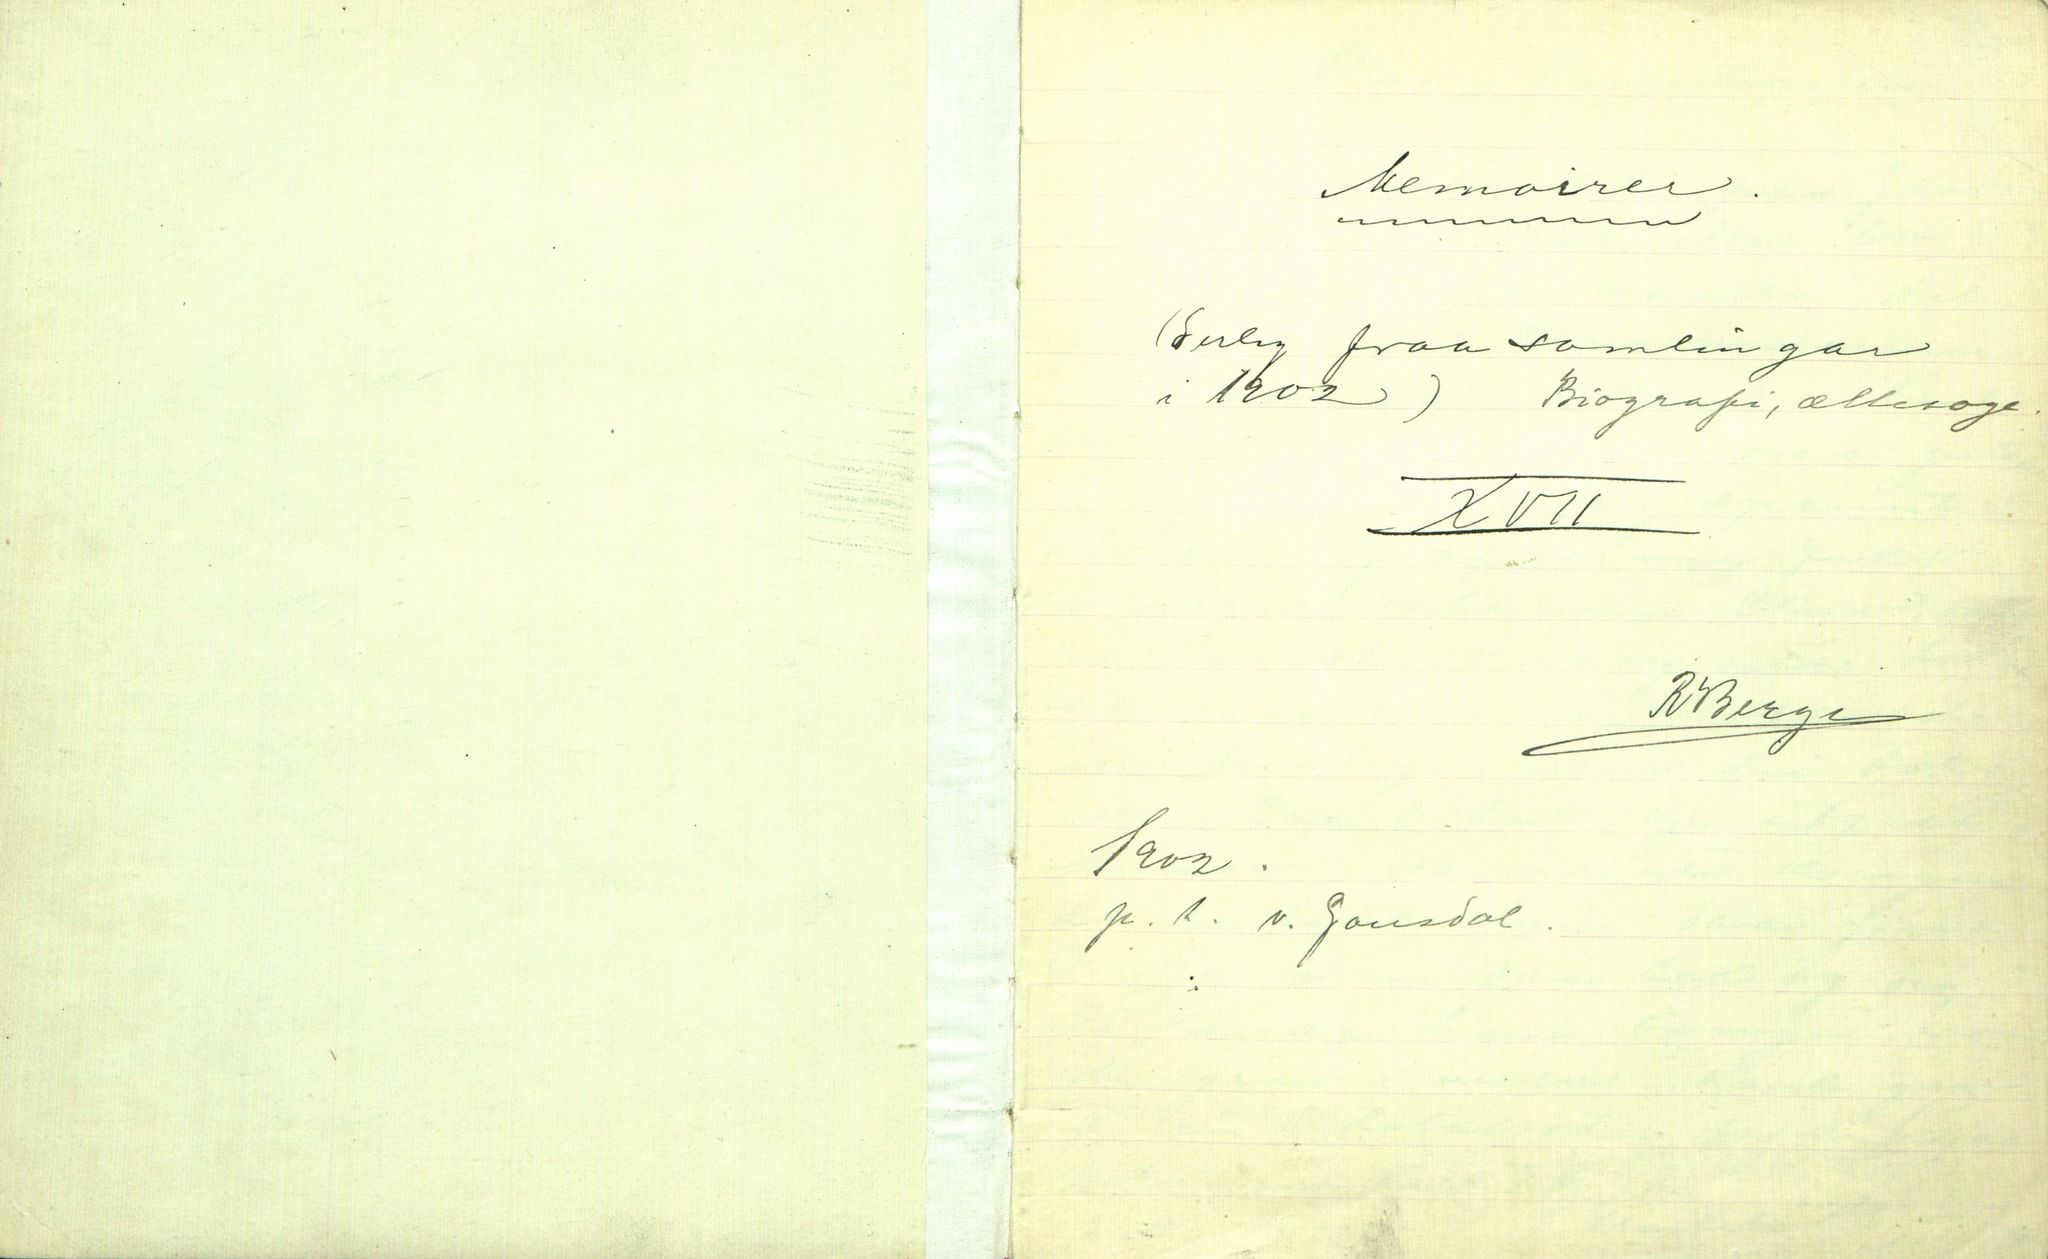 Memoirer.
(Serleg fraa samlingar
i 1902) Biografi, ættesoge.
XVII
RBerge
1902.
p. t. v. Gausdal.